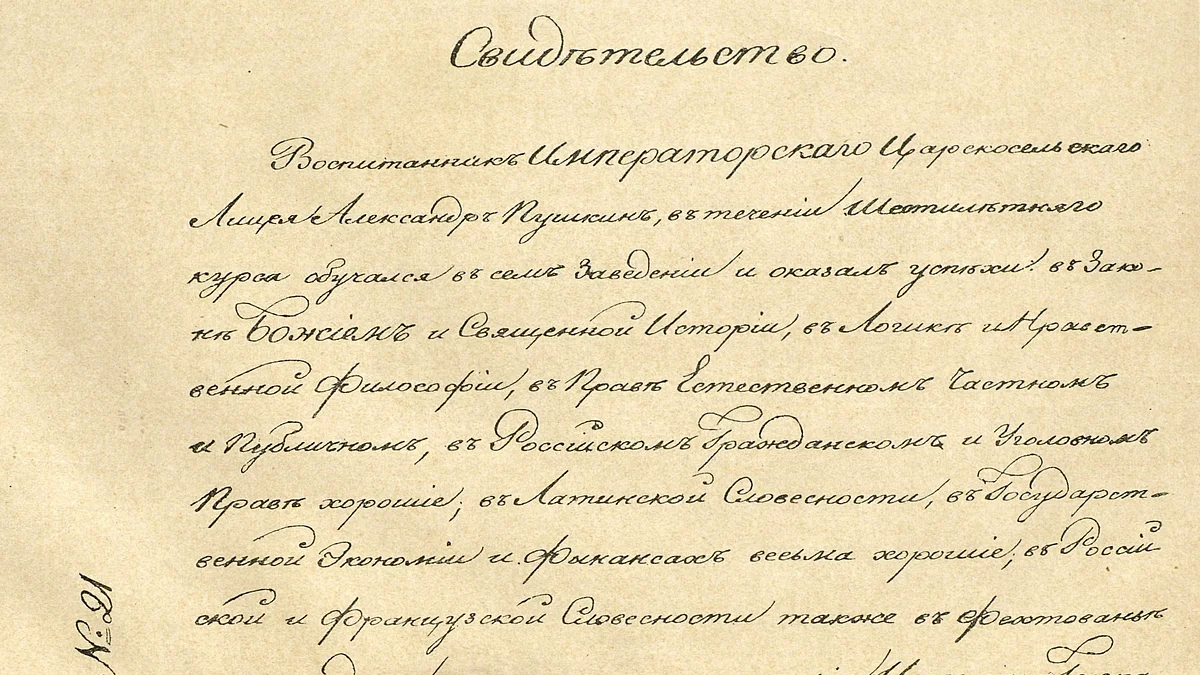 Свидѣтельство.
Воспитанникъ Императорскаго Царскосельскаго
Лицея Александръ Пушкинъ, въ теченіи Шестилѣтняго
курса обучался въ семъ Заведеніи и оказалъ успѣхи: въ Зако-
нѣ Божіемъ и Священной Исторіи, въ Логикѣ и Нравст-
венной Философіи, въ Правѣ Естественномъ Частномъ
и Публичномъ, въ Россійскомъ Гражданскомъ и Уголовномъ
Правѣ хорошіе; въ Латинской Словесности, въ Государст-
венной Экономіи и Финансахъ весьма хорошіе; въ Россій
ской и Французской Словесности также въ Фехтованьѣ
№ 21